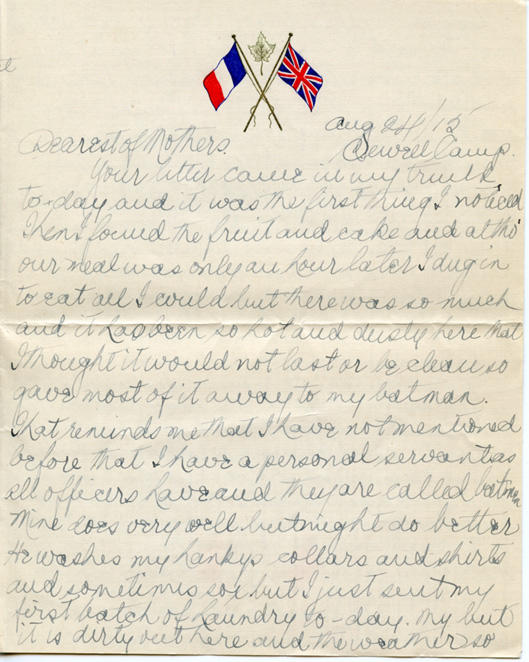 Aug 24/15
Dearest of Mothers. Sewell Camp.
Your letter came in my trunk
to-day and it was the first thing I noticed
Then I found the fruit and cake and altho'
our meal was only an hour later I dug in
to eat all I could but there was so much
and it has been so hot and dusty here that
I thought it would not last or be clean so
gave most of it away to my batman.
That reminds me that I have not mentioned
before that I have a personal servant as
all officers have and they are called batmen
Mine does very well but might do better
He washes my hankys collars and shirts
and sometimes sox but I just sent my
first batch of laundry to-day. My but
it is dirty out here and the weather so